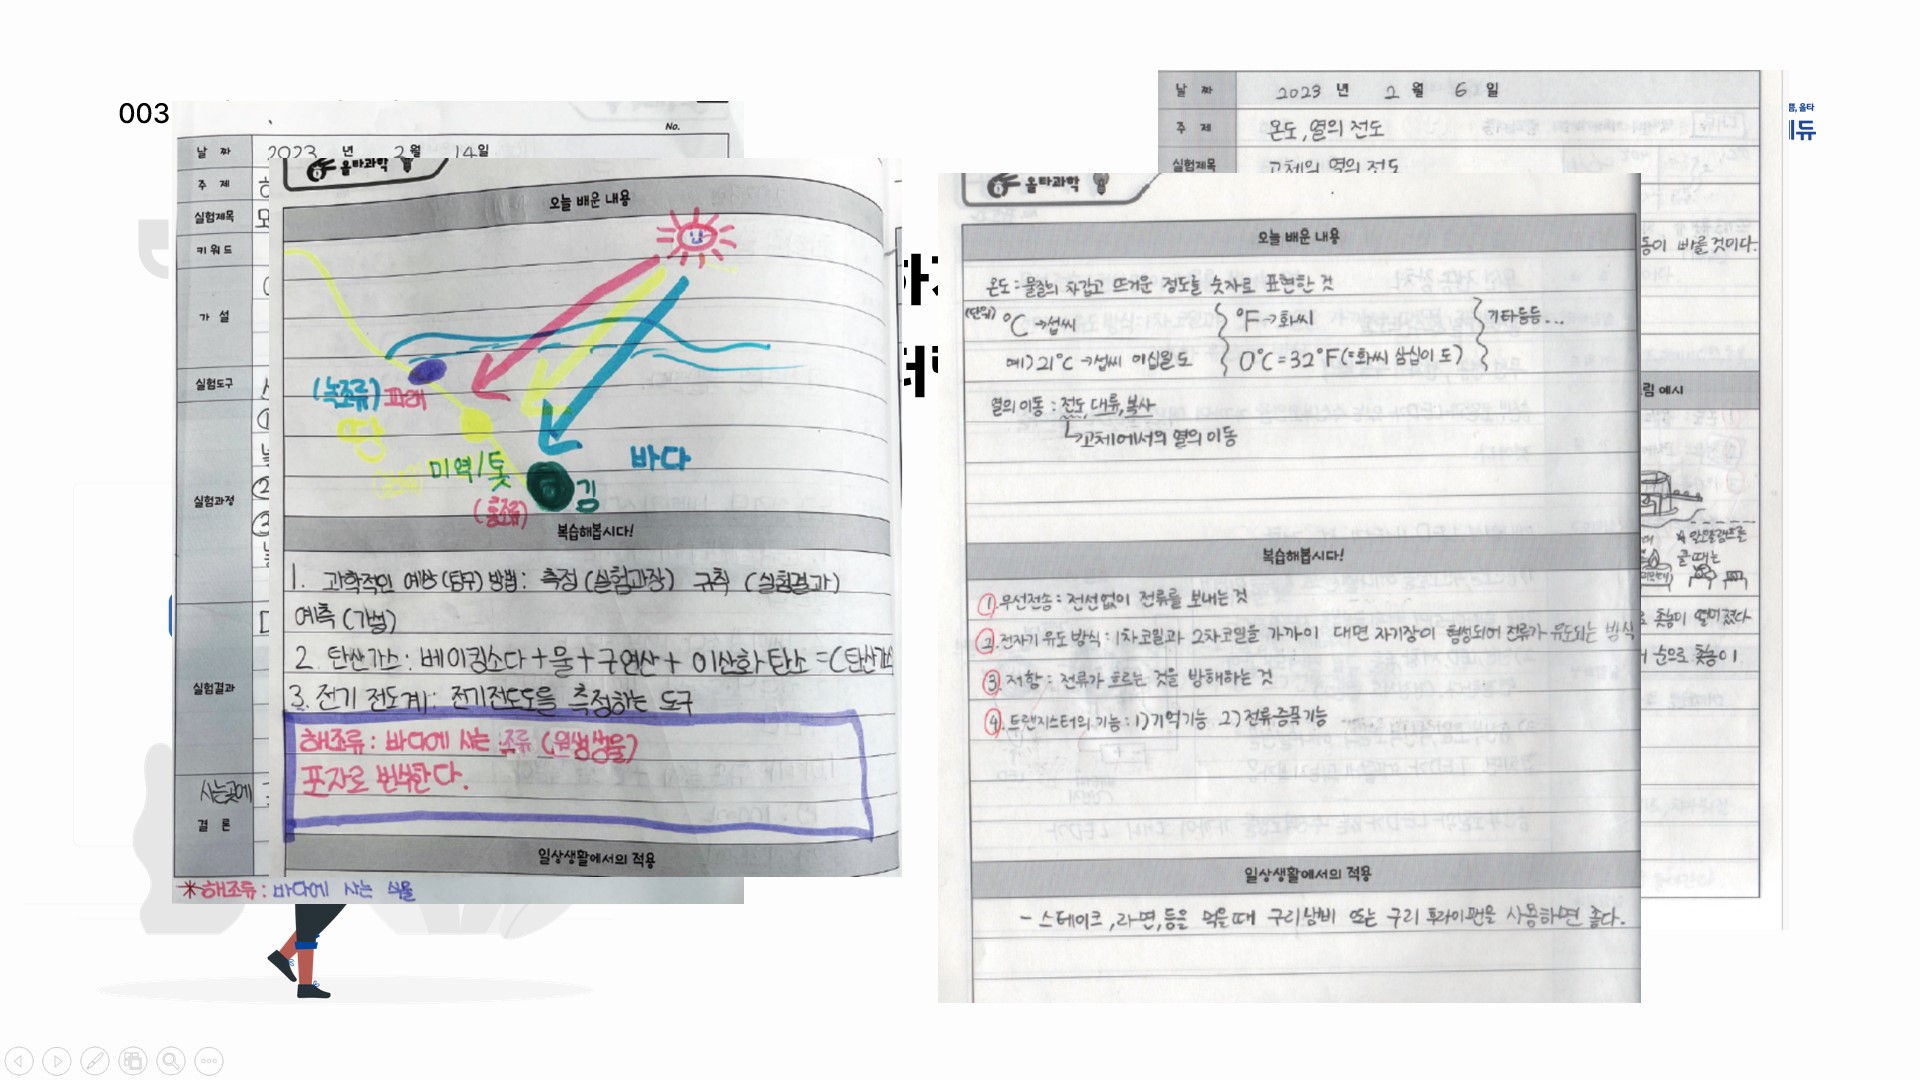 003
No.
날 짜 2023 년 2월 14일
주 제
실험제목
키워드
가 설
실험도구
실험과정
①
②
③
실험결과
사는곳에
결 론
*해조류 : 바다에 사는 식물
올타과학
오늘 배운 내용
(녹조류) 파래
땅
미역/톳
바다
김
(홍조류)
복습해봅시다!
1. 과학적인 예상(탐구) 방법: 측정 (실험과정) 규칙 (실험결과)
예측 (가설)
2. 탄산가스: 베이킹소다+물+구연산+ 이산화탄소 =(탄산가스
3. 전기 전도계: 전기전도도을 측정하는 도구
해조류: 바다에 사는 조류 (원생생물)
포자로 번식한다.
일상생활에서의 적용
날 짜 2023 년 2 월 6 일
주 제 온도, 열의 전도
실험제목 고체의 열의 전도
올타과학
오늘 배운 내용
온도 : 물질의 차갑고 뜨거운 정도를 숫자로 표현한 것
(단위) °C →섭씨 °F →화씨 기타등등...
예) 21°C →섭씨 이십일 도 0°C = 32°F (=화씨 삼십이 도)
열의 이동 : 전도, 대류, 복사
고체에서의 열의 이동
복습해봅시다!
①.무선전송 : 전선없이 전류를 보내는 것
②.전자기 유도 방식 : 1차코일과 2차코일을 가까이 대면 자기장이 형성되어 전류가 유도되는 방식
③. 저항 : 전류가 흐르는 것을 방해하는 것
④.트랜지스터의 기능 : 1)기억기능 2)전류증폭기능
일상생활에서의 적용
- 스테이크, 라면,등을 먹을때 구리냄비 또는 구리 후라이팬을 사용하면 좋다.
동이 빠를것이다.
림 예시
알코올램프를
끌 때는
촛농이 떨어졌다
순으로 촛농이
, 올타
에듀